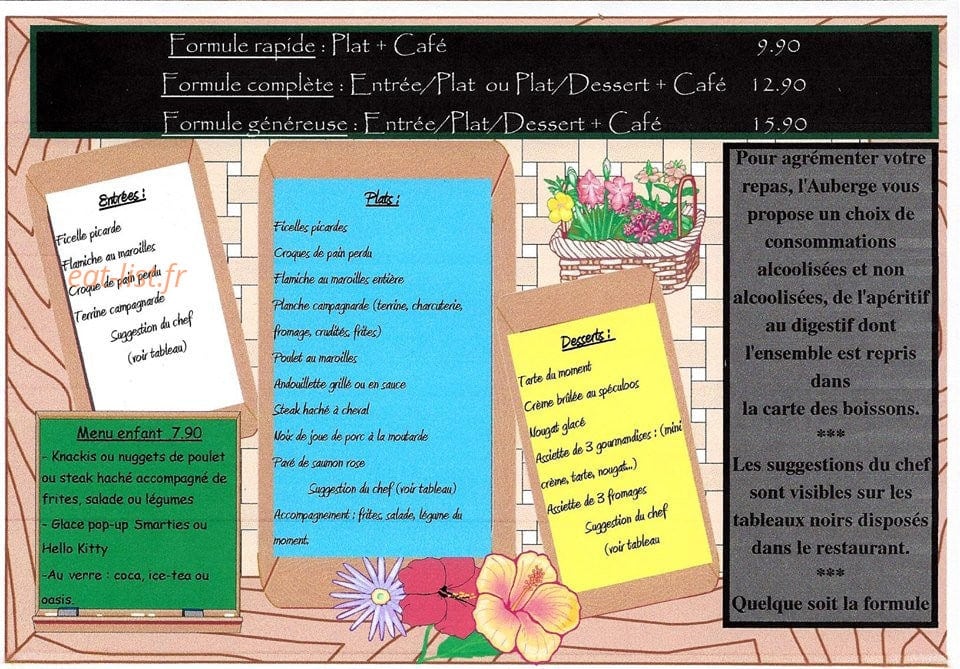 Formule rapide : Plat + Café 9.90
Formule complète : Entrée/Plat ou Plat/Dessert + Café 12.90
Formule généreuse : Entrée/Plat/Dessert + Café 15.90
Entrées :
Ficelle picarde
Flamiche au maroilles
Croque de pain perdu
Terrine campagnarde
Suggestion du chef
(voir tableau)
eat-list.fr
Menu enfant 7.90
- Knackis ou nuggets de poulet
ou steak haché accompagné de
frites, salade ou légumes
- Glace pop-up Smarties ou
Hello Kitty
-Au verre : coca, ice-tea ou
oasis.
Plats :
Ficelles picardes
Croques de pain perdu
Flamiche au maroilles entière
Planche campagnarde (terrine, charcuterie,
fromage, crudités, frites)
Poulet au maroilles
Andouillette grillé ou en sauce
Steak haché à cheval
Noix de joue de porc à la moutarde
Pavé de saumon rose
Suggestion du chef (voir tableau)
Accompagnement : frites, salade, légume du
moment.
Desserts :
Tarte du moment
Crème brûlée au spéculoos
Nougat glacé
Assiette de 3 gourmandises : (mini
crème, tarte, nougat...)
Assiette de 3 fromages
Suggestion du chef
(voir tableau
Pour agrémenter votre
repas, l'Auberge vous
propose un choix de
consommations
alcoolisées et non
alcoolisées, de l'apéritif
au digestif dont
l'ensemble est repris
dans
la carte des boissons.
***
Les suggestions du chef
sont visibles sur les
tableaux noirs disposés
dans le restaurant.
***
Quelque soit la formule